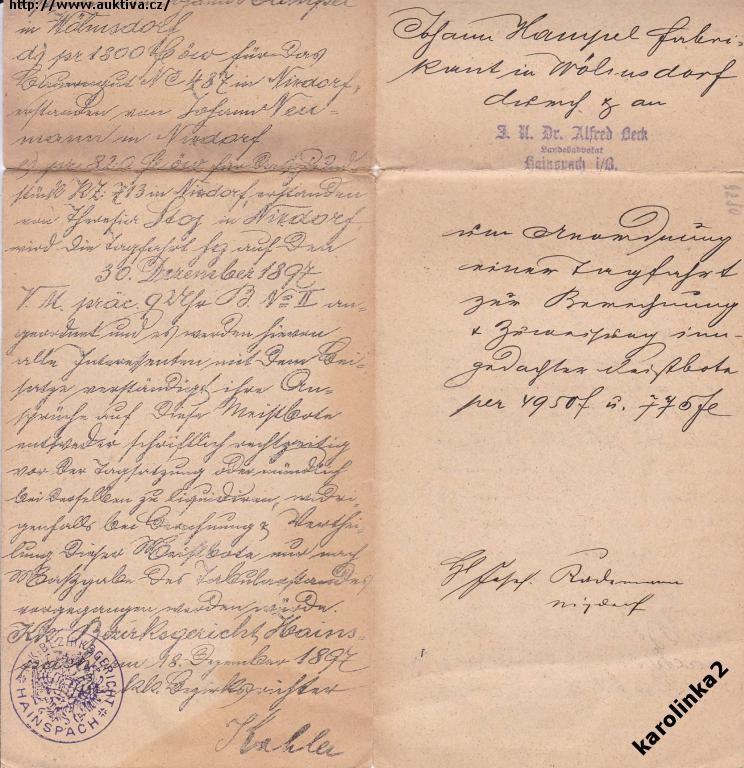 http://www.auktiva.cz/
Johann Hampel
in Wölmsdorf
d) pr 1800 f öw für das
Bauerngut NC 487 in Nixdorf,
erstanden von Johann Neu-
mann in Nixdorf
e) pr 820 f öw für das Grund
stück KZ: 713 in Nixdorf, erstanden
von Theresia Stoz in Nixdorf
wird die Tagfahrt hg auf den
30. Dezember 1897
V. M. präc. 9 Uhr B. No II an-
geordnet und es werden hievon
alle Interessenten mit dem Bei-
satze verständigt, ihre An-
sprüche auf diese Meistbote
entweder schriftlich rechtzeitig
vor der Tagsatzung oder mündlich
bei derselben zu liquidiren, widri-
genfalls bei Berechnung & Verthei-
lung dieser Meistbote nur nach
Maßgabe des Tabularstandes
vorgegangen werden würde.
K.k. Bezirksgericht Hains-
pach am 18. Dezember 1897
kk Bezirksrichter
K.K. BEZIRKSGERICHT
HAINSPACH
Johann Hampel Fabri-
kant in Wölmsdorf
durch & an
J. U. Dr. Alfred Beck
Landesadvokat
Hainspach i/B.
um Anordnung
einer Tagfahrt
zur Berechnung
& Zuweisung inn-
gedachter Meistbote
per 4950 f. u. 775 f
H Josef Rademann
Nixdorf
karolinka2